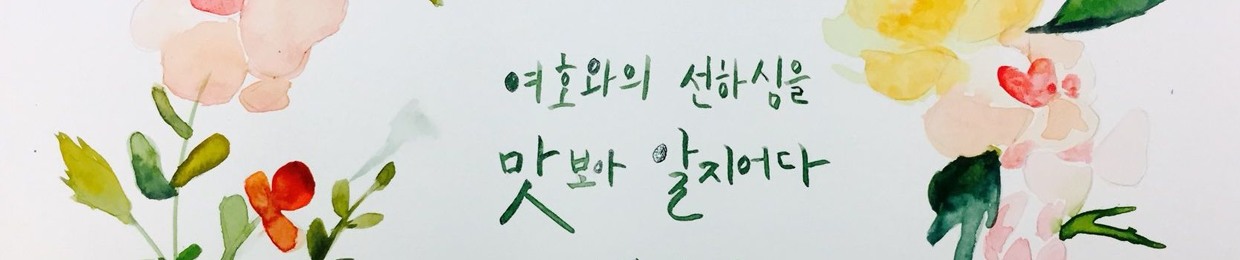 여호와의 선하심을
맛보아 알지어다